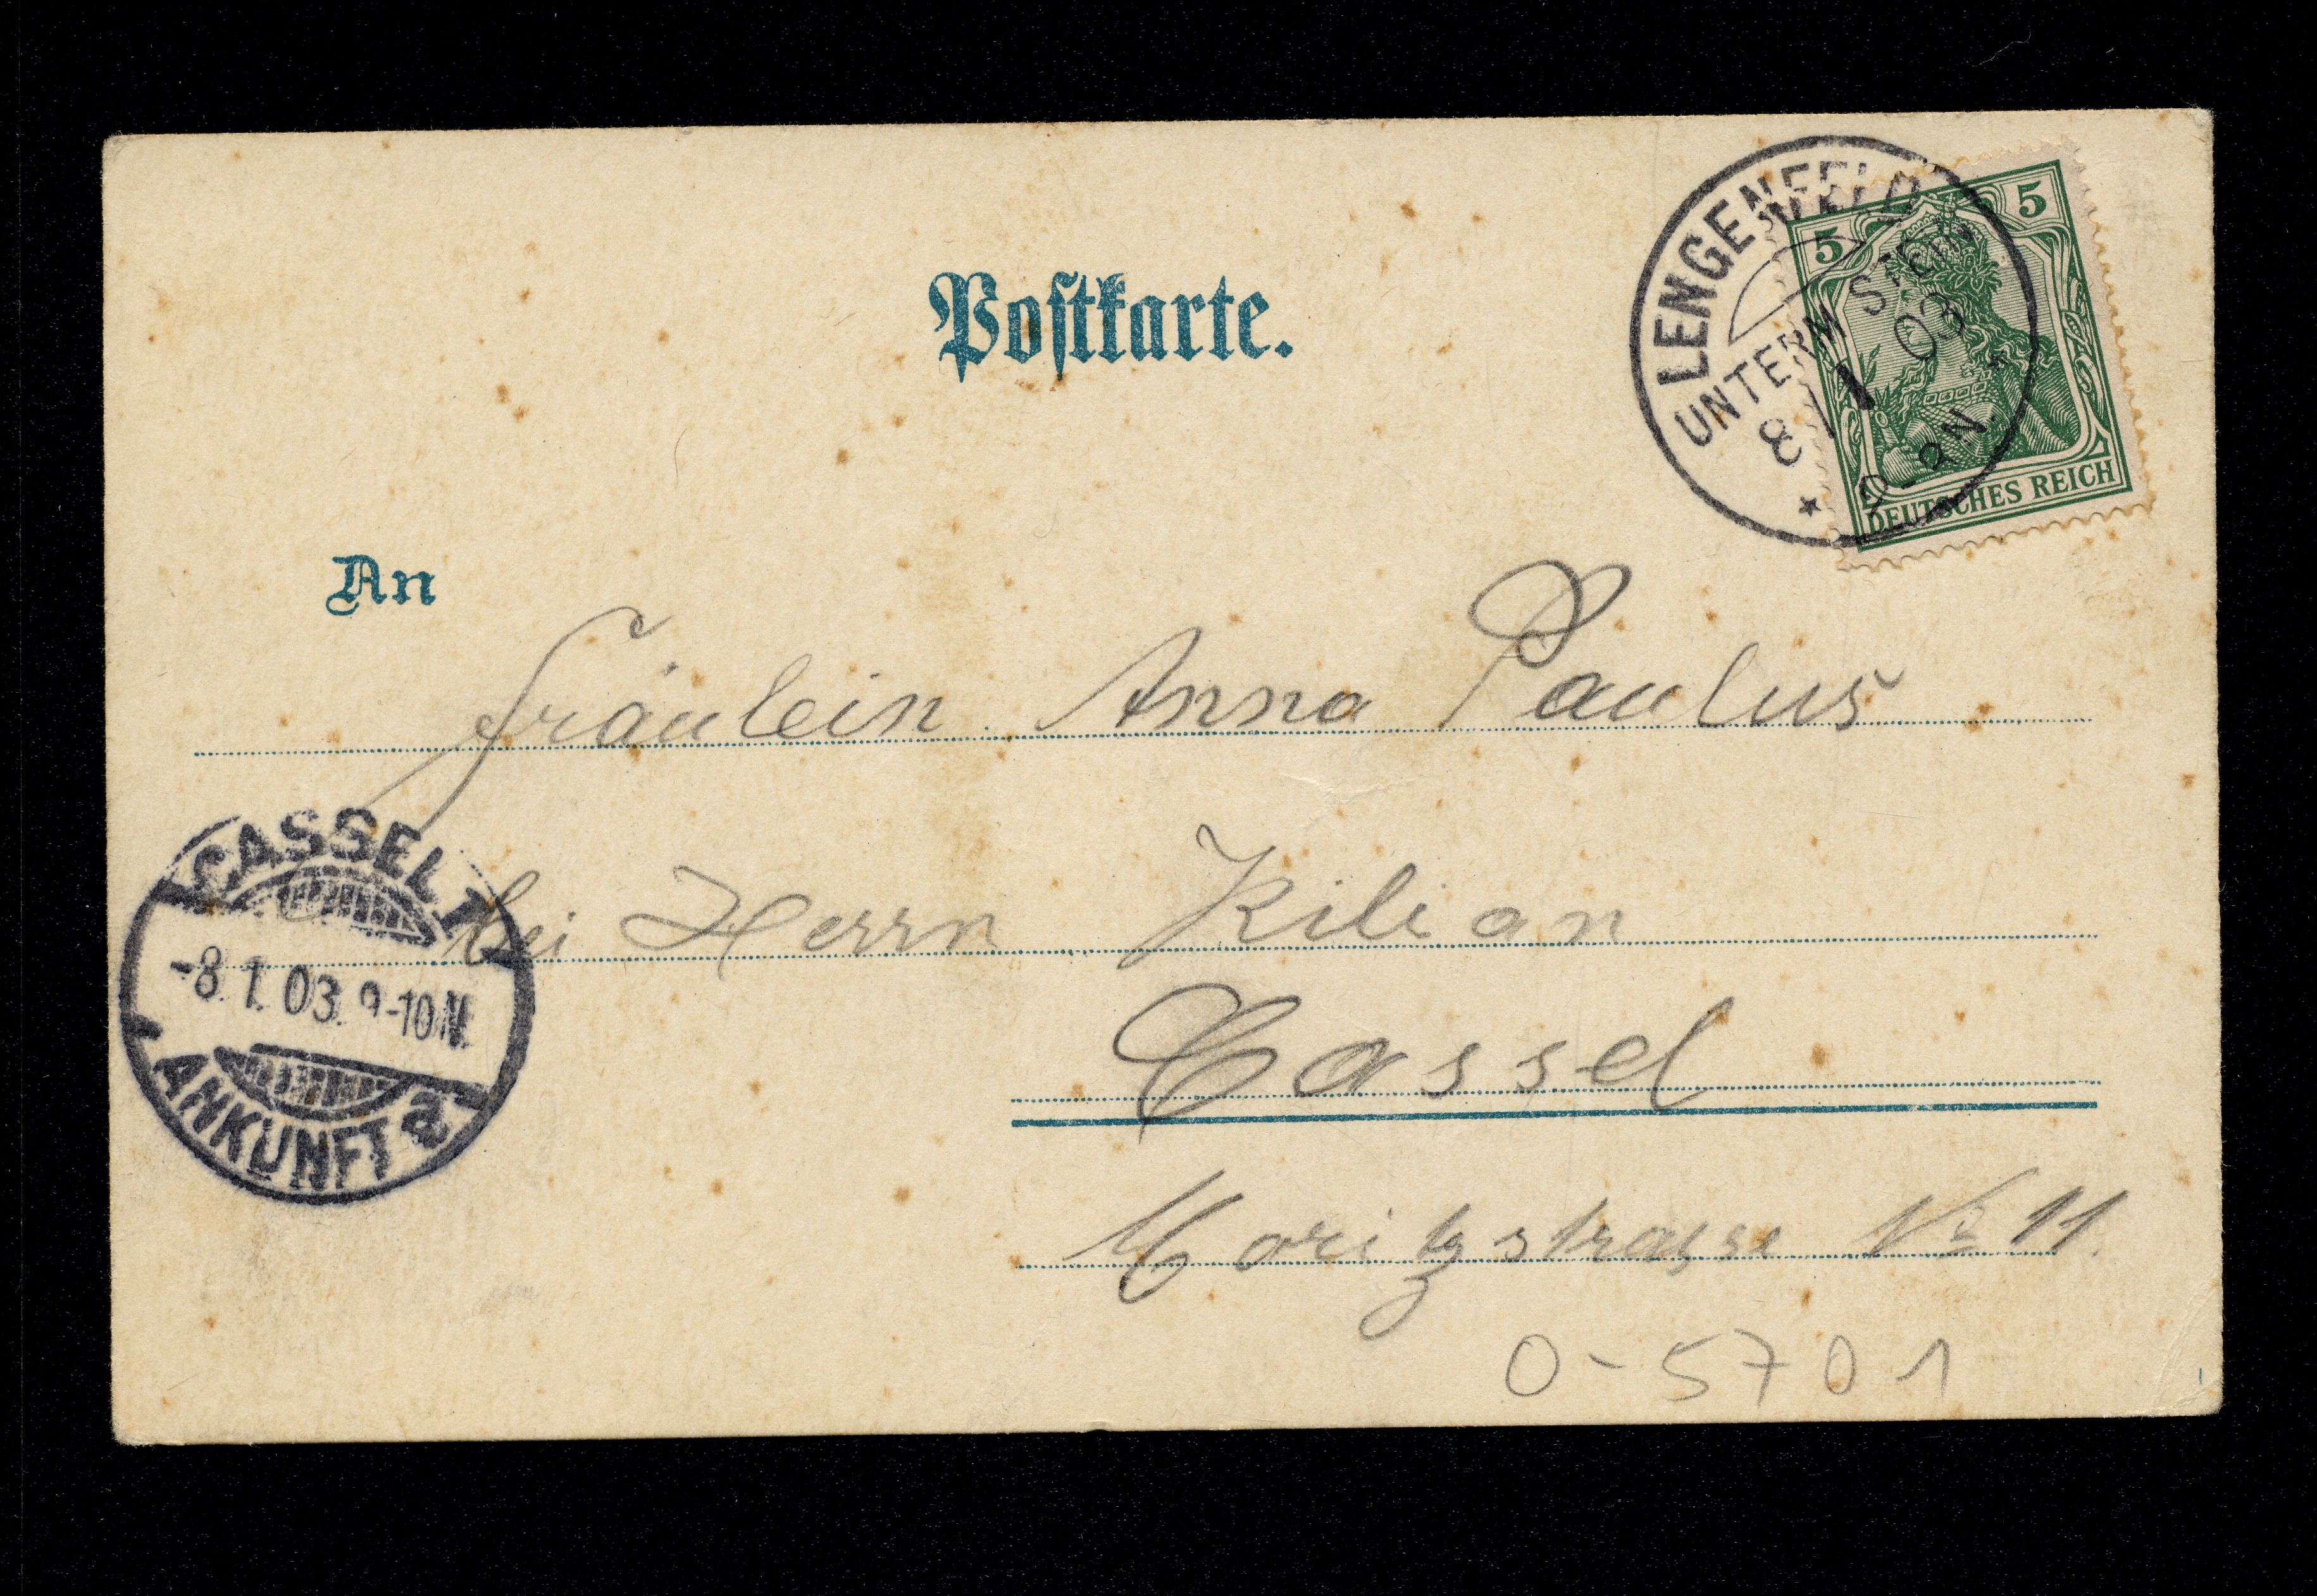 Postkarte.
LENGENFELD
UNTERM STEIN
8 1 03
* 2-3N. *
5 5
DEUTSCHES REICH
An
Fräulein Anna Paulus
bei Herrn Kilian
Cassel
Moritzstrasse No 11.
CASSEL 1
-8.1.03. 9-10N.
ANKUNFT a
0-5701